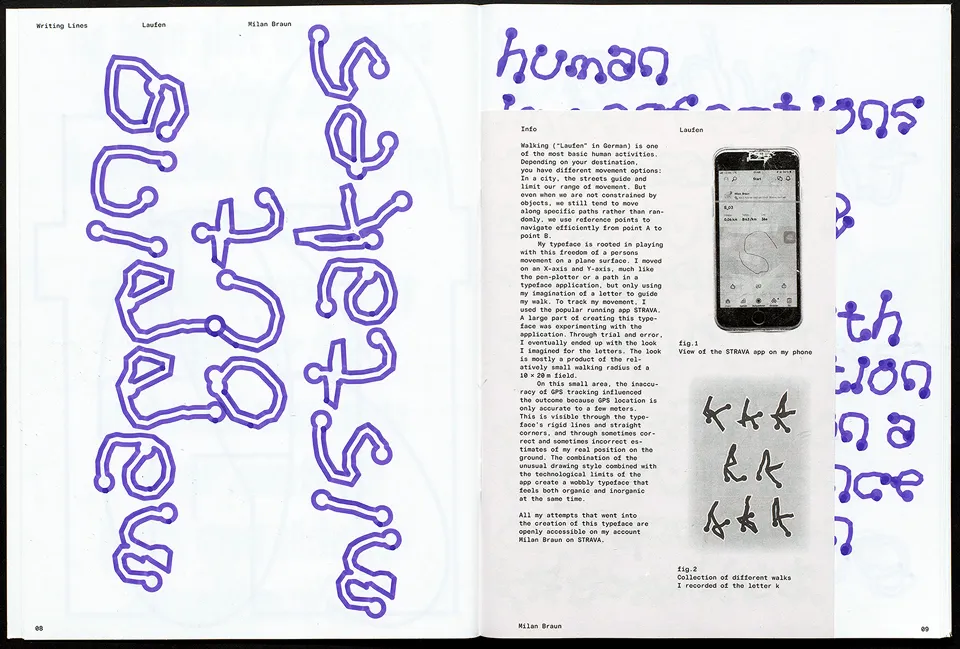 Writing Lines
Laufen
Milan Braun
08
human
Info
Laufen
Walking (“Laufen” in German) is one
of the most basic human activities.
Depending on your destination,
you have different movement options:
In a city, the streets guide and
limit our range of movement. But
even when we are not constrained by
objects, we still tend to move
along specific paths rather than ran-
domly, we use reference points to
navigate efficiently from point A to
point B.
My typeface is rooted in playing
with this freedom of a persons
movement on a plane surface. I moved
on an X-axis and Y-axis, much like
the pen-plotter or a path in a
typeface application, but only using
my imagination of a letter to guide
my walk. To track my movement, I
used the popular running app STRAVA.
A large part of creating this type-
face was experimenting with the
application. Through trial and error,
I eventually ended up with the look
I imagined for the letters. The look
is mostly a product of the rel-
atively small walking radius of a
10 × 20 m field.
On this small area, the inaccu-
racy of GPS tracking influenced
the outcome because GPS location is
only accurate to a few meters.
This is visible through the type-
face’s rigid lines and straight
corners, and through sometimes cor-
rect and sometimes incorrect es-
timates of my real position on the
ground. The combination of the
unusual drawing style combined with
the technological limits of the
app create a wobbly typeface that
feels both organic and inorganic
at the same time.
All my attempts that went into
the creation of this typeface are
openly accessible on my account
Milan Braun on STRAVA.
Milan Braun
fig.1
View of the STRAVA app on my phone
k k k
k k
k k k
fig.2
Collection of different walks
I recorded of the letter k
09